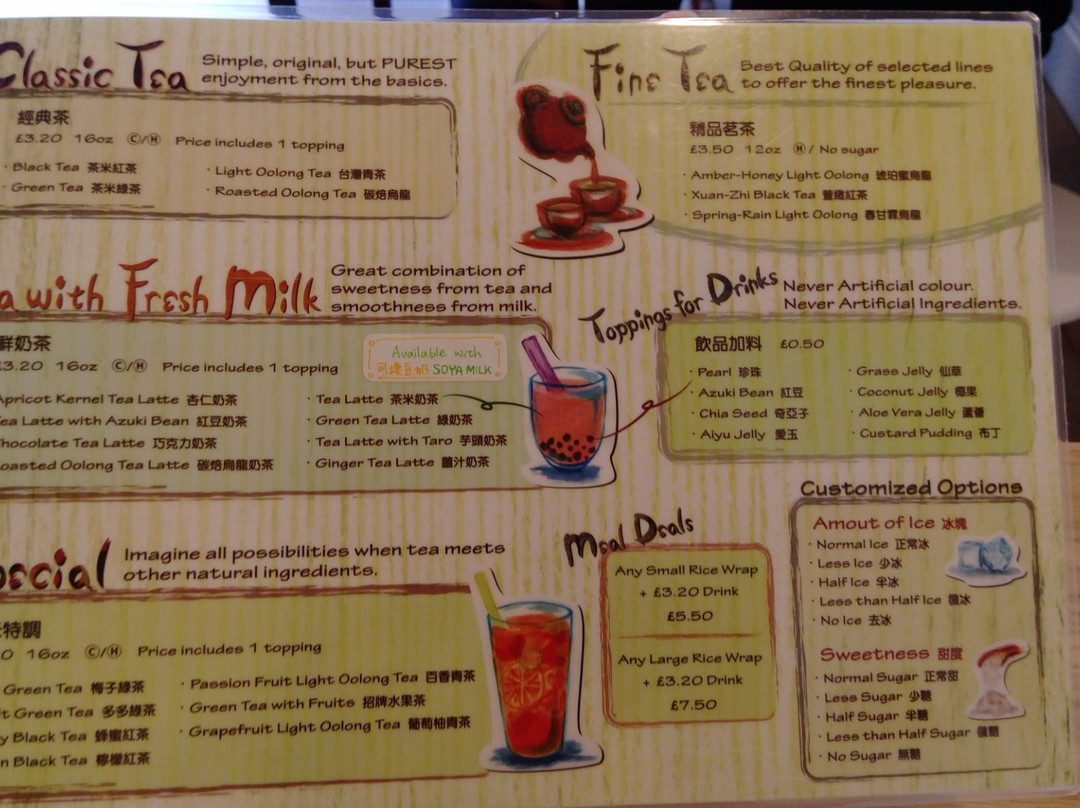 Classic Tea
Simple, original, but PUREST
enjoyment from the basics.
經典茶
£3.20 16oz Ⓒ/Ⓗ Price includes 1 topping
· Black Tea 茶米紅茶
· Green Tea 茶米綠茶
· Light Oolong Tea 台灣青茶
· Roasted Oolong Tea 碳焙烏龍
Fine Tea
Best Quality of selected lines
to offer the finest pleasure.
精品茗茶
£3.50 12oz Ⓗ/ No sugar
· Amber-Honey Light Oolong 琥珀蜜烏龍
· Xuan-Zhi Black Tea 萱緻紅茶
· Spring-Rain Light Oolong 春甘霖烏龍
a with Fresh Milk
Great combination of
sweetness from tea and
smoothness from milk.
鮮奶茶
£3.20 16oz Ⓒ/Ⓗ Price includes 1 topping
Available with
可換豆奶 SOYA MILK
Apricot Kernel Tea Latte 杏仁奶茶
Tea Latte with Azuki Bean 紅豆奶茶
Chocolate Tea Latte 巧克力奶茶
Roasted Oolong Tea Latte 碳焙烏龍奶茶
· Tea Latte 茶米奶茶
· Green Tea Latte 綠奶茶
· Tea Latte with Taro 芋頭奶茶
· Ginger Tea Latte 薑汁奶茶
Toppings for Drinks
Never Artificial colour.
Never Artificial Ingredients.
飲品加料 £0.50
· Pearl 珍珠
· Azuki Bean 紅豆
· Chia Seed 奇亞子
· Aiyu Jelly 愛玉
· Grass Jelly 仙草
· Coconut Jelly 椰果
· Aloe Vera Jelly 蘆薈
· Custard Pudding 布丁
pecial
Imagine all possibilities when tea meets
other natural ingredients.
特調
0 16oz Ⓒ/Ⓗ Price includes 1 topping
Green Tea 梅子綠茶
t Green Tea 多多綠茶
y Black Tea 蜂蜜紅茶
n Black Tea 檸檬紅茶
· Passion Fruit Light Oolong Tea 百香青茶
· Green Tea with Fruits 招牌水果茶
· Grapefruit Light Oolong Tea 葡萄柚青茶
Meal Deals
Any Small Rice Wrap
+ £3.20 Drink
£5.50
Any Large Rice Wrap
+ £3.20 Drink
£7.50
Customized Options
Amout of Ice 冰塊
· Normal Ice 正常冰
· Less Ice 少冰
· Half Ice 半冰
· Less than Half Ice 微冰
· No Ice 去冰
Sweetness 甜度
· Normal Sugar 正常甜
· Less Sugar 少糖
· Half Sugar 半糖
· Less than Half Sugar 微糖
· No Sugar 無糖